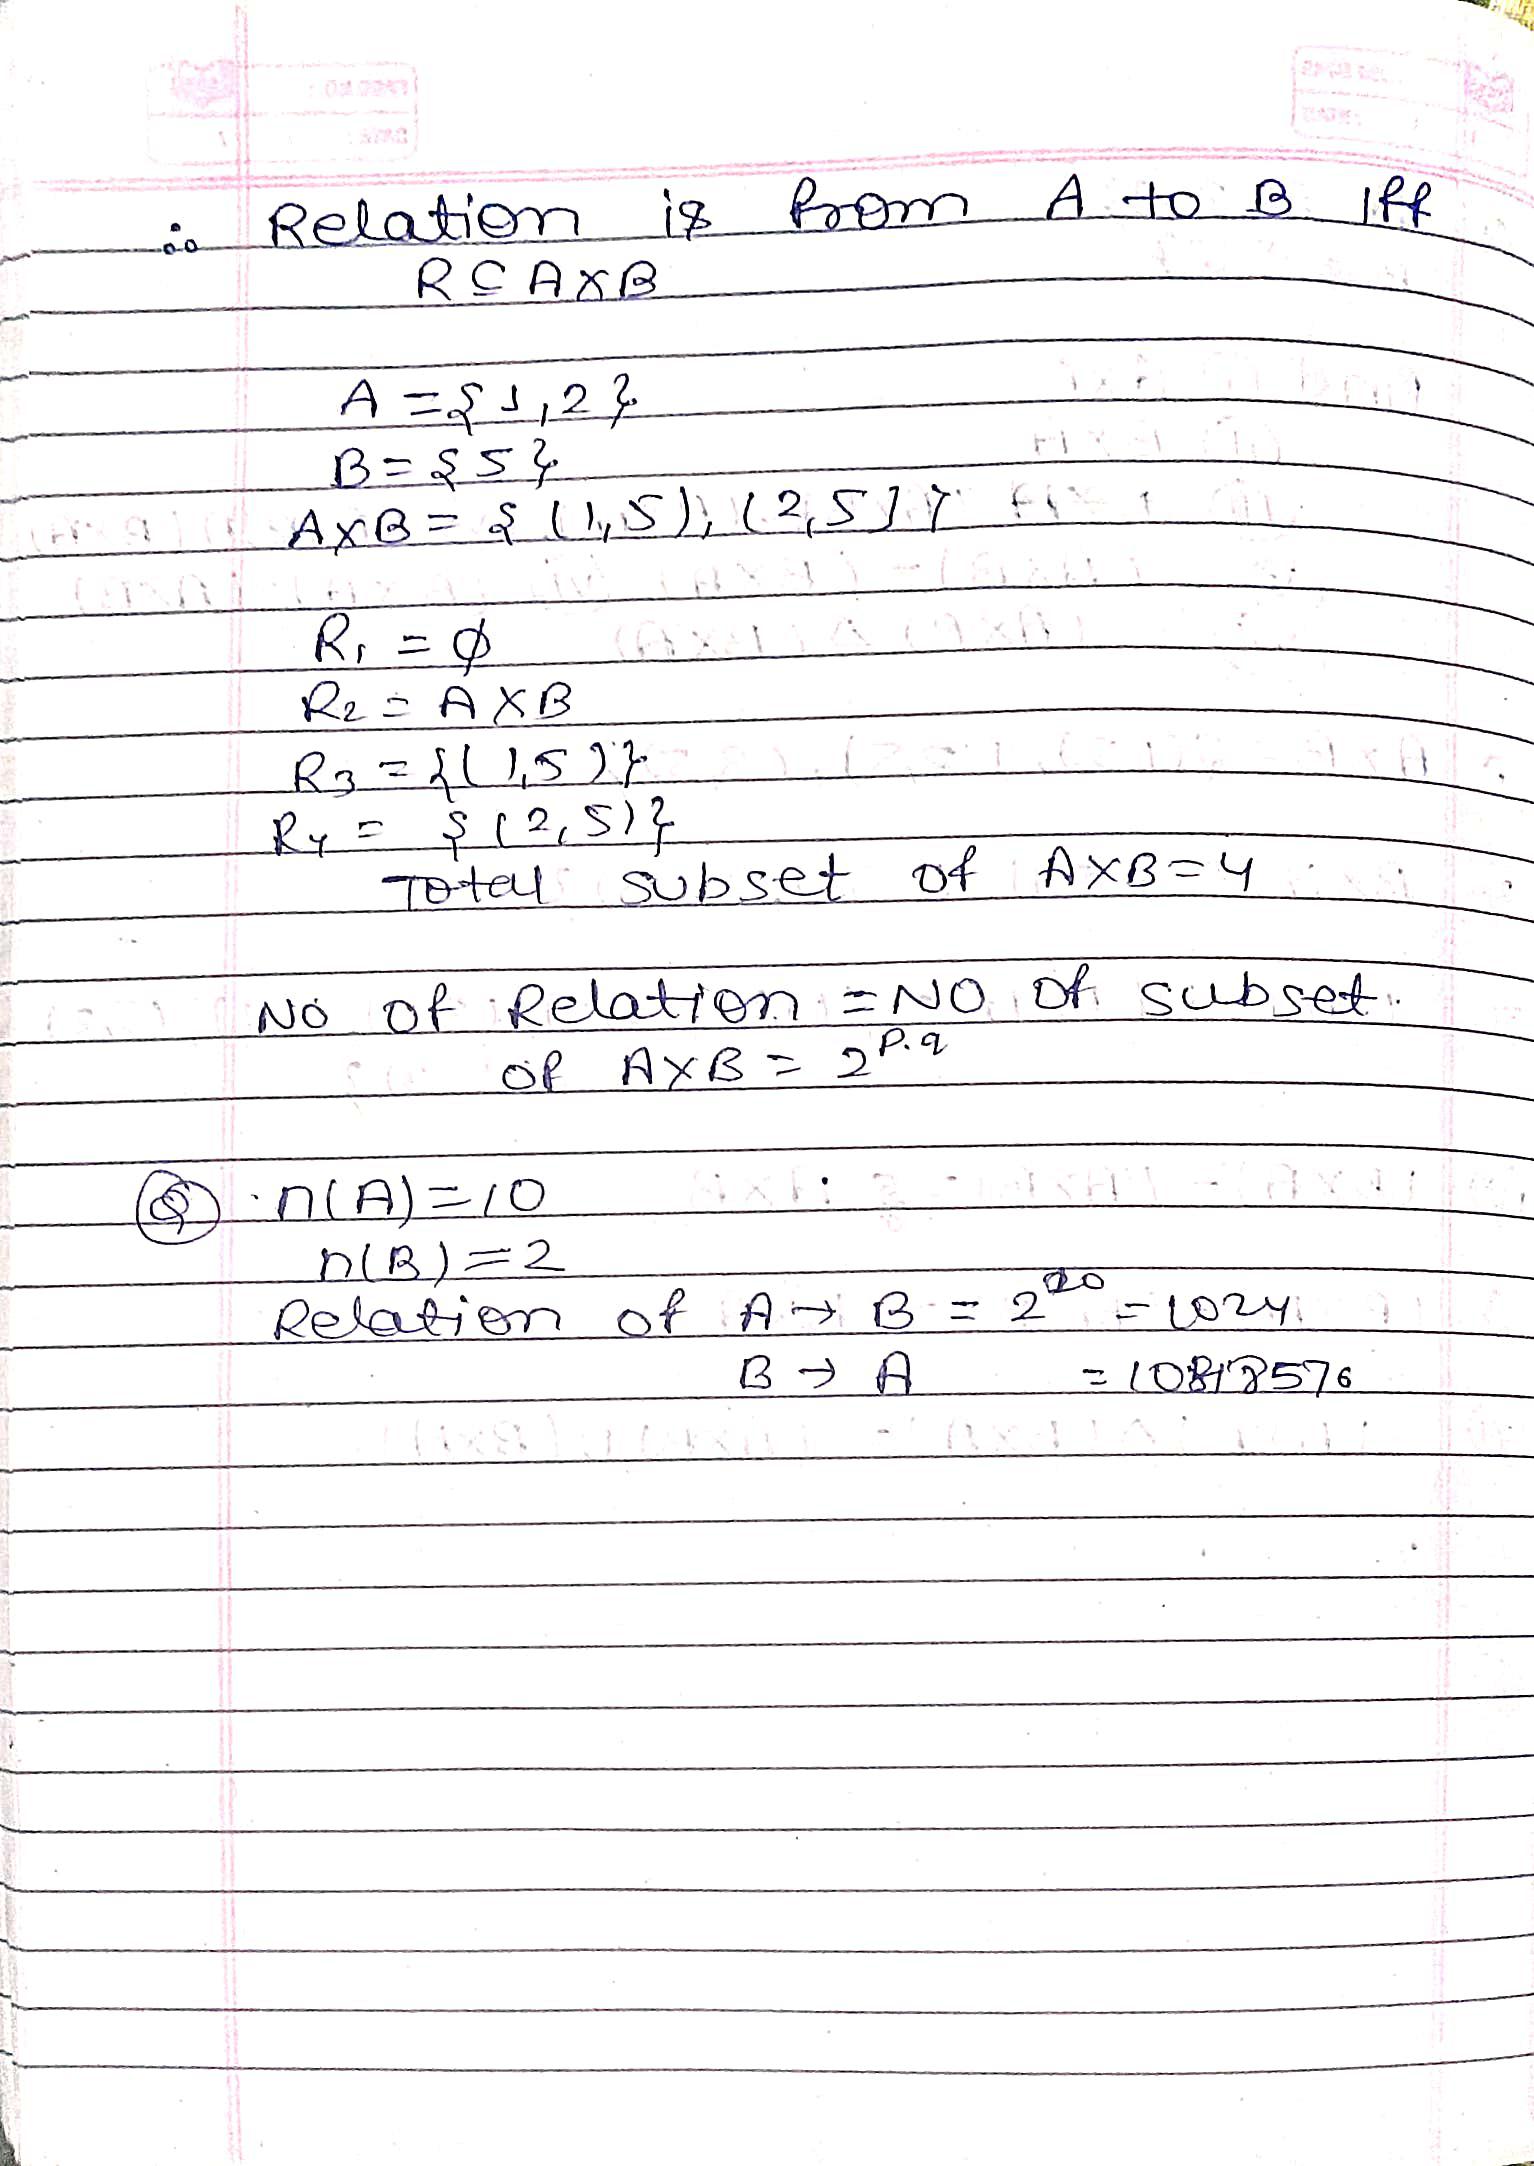 ∴ Relation is from A to B iff
R ⊆ A×B
A = {1,2}
B = {5}
A×B = {(1,5), (2,5)}
R₁ = ∅
R₂ = A×B
R₃ = {(1,5)}
R₄ = {(2,5)}
Total subset of A×B = 4
No of Relation = No of subset
of A×B = 2^p.q
Q n(A) = 10
n(B) = 2
Relation of A → B = 2^20 = 1024
B → A =